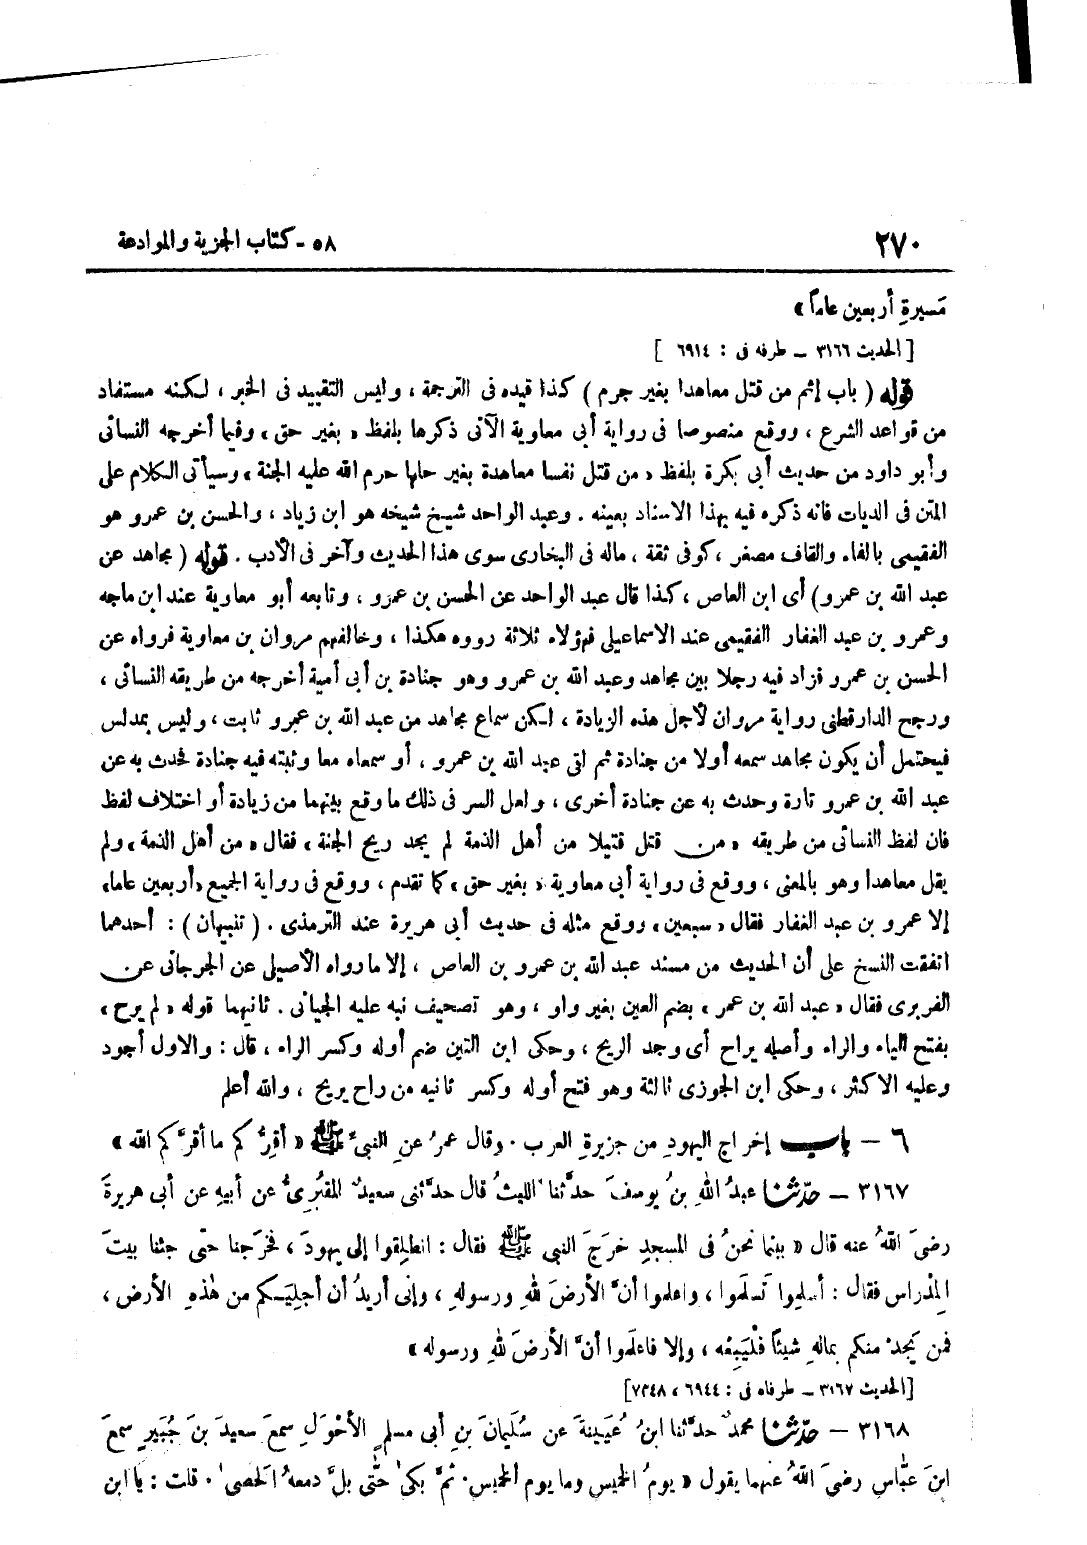 ٢٧٠
٥٨ - كتاب الجزية والموادعة
مَسيرةِ أربعين عاماً »
[ الحديث ٣١٦٦ ـ طرفه فى : ٦٩١٤ ]
قوله ( باب إثم من قتل معاهدا بغير جرم ) كذا قيده فى الترجمة ، وليس التقييد فى الخبر ، لكنه مستفاد
من قواعد الشرع ، ووقع منصوصا فى رواية أبى معاوية الآتى ذكرها بلفظ « بغير حق ، وفيما أخرجه النسائى
وأبو داود من حديث أبى بكرة بلفظ « من قتل نفسا معاهدة بغير حلها حرم الله عليه الجنة ، وسيأتى الكلام على
المتن فى الديات فانه ذكره فيه بهذا الاسناد بعينه . وعبد الواحد شيخ شيخه هو ابن زياد ، والحسن بن عمرو هو
الفقيمى بالفاء والقاف مصغر ، كوفى ثقة ، ماله فى البخارى سوى هذا الحديث وآخر فى الأدب . قوله ( مجاهد عن
عبد الله بن عمرو ) أى ابن العاص ، كذا قال عبد الواحد عن الحسن بن عمرو ، وتابعه أبو معاوية عند ابن ماجه
وعمرو بن عبد الغفار الفقيمى عند الاسماعيلى فهؤلاء ثلاثة رووه هكذا ، وخالفهم مروان بن معاوية فرواه عن
الحسن بن عمرو فزاد فيه رجلا بين مجاهد وعبد الله بن عمرو وهو جنادة بن أبى أمية أخرجه من طريقه النسائى ،
ورجح الدارقطنى رواية مروان لأجل هذه الزيادة ، لكن سماع مجاهد من عبد الله بن عمرو ثابت ، وليس بمدلس
فيحتمل أن يكون مجاهد سمعه أولا من جنادة ثم لقى عبد الله بن عمرو ، أو سمعاه معا وثبته فيه جنادة فحدث به عن
عبد الله بن عمرو تارة وحدث به عن جنادة أخرى ، ولعل السر فى ذلك ما وقع بينهما من زيادة أو اختلاف لفظ
فان لفظ النسائى من طريقه « من قتل قتيلا من أهل الذمة لم يجد ريح الجنة ، فقال « من أهل الذمة ، ولم
يقل معاهدا وهو بالمعنى ، ووقع فى رواية أبى معاوية « بغير حق ، كما تقدم ، ووقع فى رواية الجميع « أربعين عاما ،
إلا عمرو بن عبد الغفار فقال « سبعين ، ووقع مثله فى حديث أبى هريرة عند الترمذى . ( تنبيهان ) : أحدهما
اتفقت النسخ على أن الحديث من مسند عبد الله بن عمرو بن العاص ، إلا ما رواه الأصيلى عن الجرجانى عن
الفربرى فقال « عبد الله بن عمر ، بضم العين بغير واو ، وهو تصحيف نبه عليه الجيانى . ثانيهما قوله « لم يرح ،
بفتح الياء والراء وأصله يراح أى وجد الريح ، وحكى ابن التين ضم أوله وكسر الراء ، قال : والاول أجود
وعليه الاكثر ، وحكى ابن الجوزى ثالثة وهو فتح أوله وكسر ثانيه من راح يريح ، والله أعلم
٦ - باب إخراج اليهودِ من جزيرةِ العرب . وقال عمرُ عنِ النبىِّ ﷺ « أقِرُّكم ما أقرَّكم الله »
٣١٦٧ - حدّثنا عبدُ اللهِ بنُ يوسفَ حدَّثنا الليثُ قال حدَّثنى سعيدٌ المقبُرىُّ عن أبيهِ عن أبى هريرةَ
رضىَ اللهُ عنه قال « بينما نحنُ فى المسجدِ خرَجَ النبى ﷺ فقال : انطلِقوا إلى يهودَ ، فخرَجنا حتى جئنا بيتَ
المِدْراس فقال : أسلِموا تَسلَموا ، واعلموا أنَّ الأرضَ للهِ ورسولهِ ، وإنى أريدُ أن أجلِيَكم من هٰذهِ الأرض ،
فمن يَجِدْ منكم بمالهِ شيئاً فلْيَبِعْه ، وإلا فاعلَموا أنَّ الأرضَ للهِ ورسوله »
[الحديث ٣١٦٧ - طرفاه فى : ٦٩٤٤ ، ٧٣٤٨]
٣١٦٨ - حدّثنا محمدٌ حدَّثنا ابنُ عُيَينةَ عن سُلَيمانَ بنِ أبى مسلمٍ الأحْوَلِ سمعَ سعيدَ بنَ جُبَيرٍ سمعَ
ابنَ عبّاسٍ رضىَ اللهُ عنهما يقول « يومُ الخميس وما يوم الخميس . ثمَّ بكىٰ حتّى بلَّ دمعهُ الحصىٰ . قلت : يا ابن